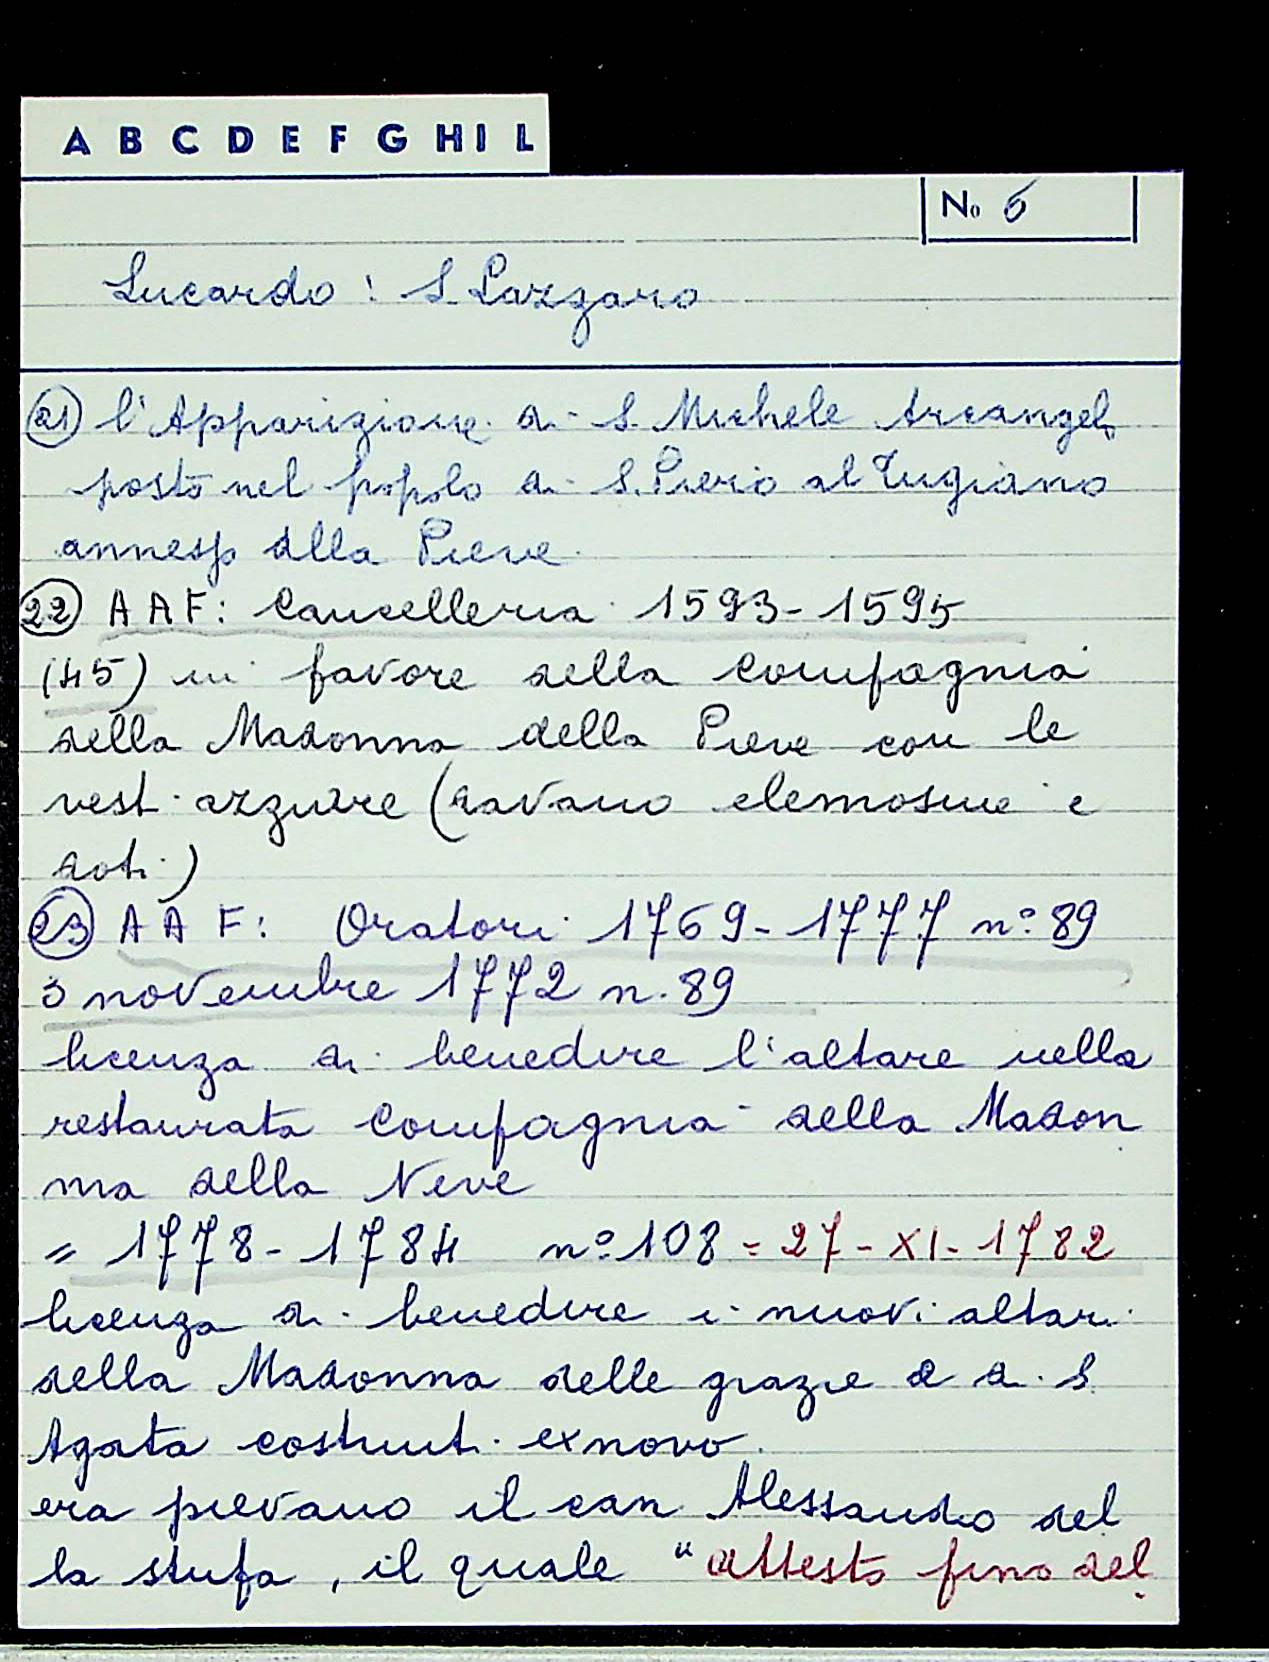 A B C D E F G H I L
No 6
Lucardo: S. Lazzaro
21) l'Apparizione di S. Michele Arcangelo
posto nel popolo di S. Piero al Tugiano
annesso alla Pieve
22) A A F: Cancelleria 1593-1595
(45) in favore della Compagnia
della Madonna della Pieve con le
vesti azzurre (davano elemosine e
doti)
23) A A F: Oratori 1769-1777 n° 89
3 novembre 1772 n. 89
licenza di benedire l'altare nella
restaurata Compagnia della Madon
na della Neve
= 1778-1784 n° 108 = 27-XI-1782
licenza di benedire i nuovi altari
della Madonna delle grazie e di S.
Agata costruiti exnovo.
era pievano il can Alessandro del
la stufa, il quale "attestò fino del